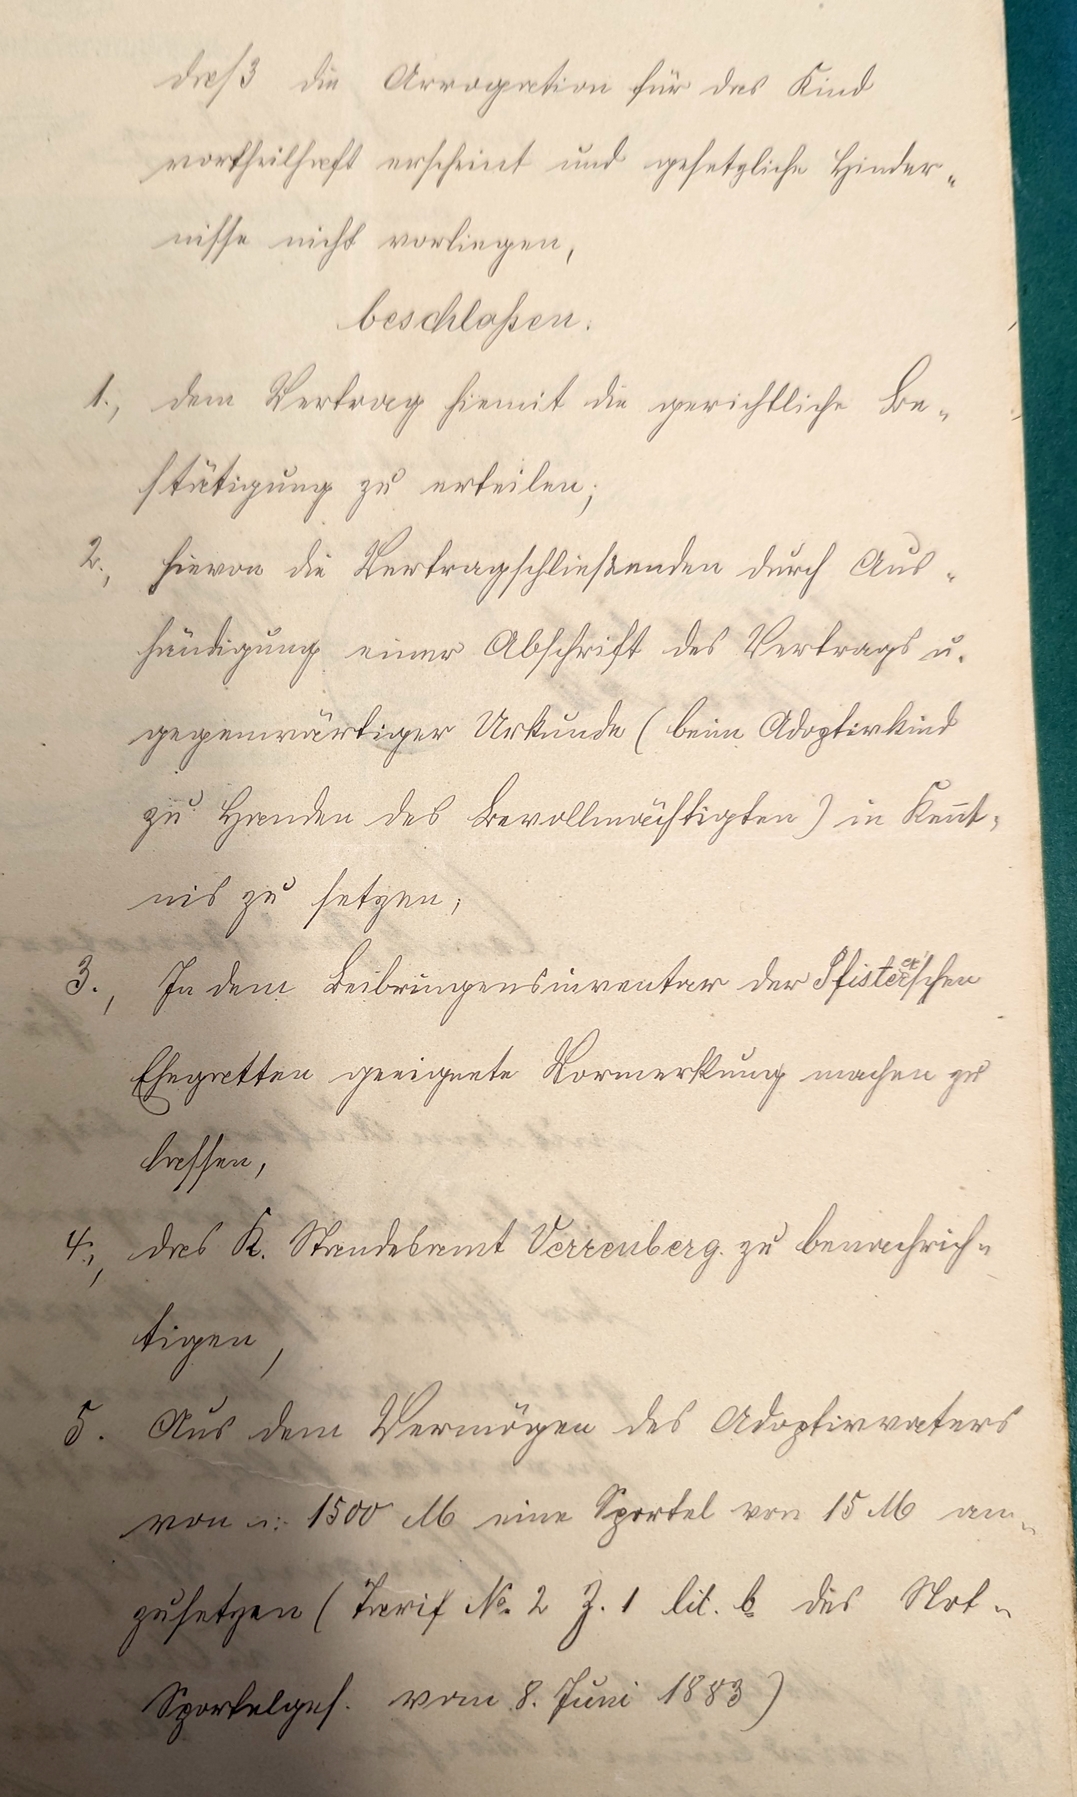 daß die Arrogation für das Kind
vortheilhaft erscheint und gesetzliche Hinder-
nisse nicht vorliegen,
beschloßen:
1., dem Vertrag hiemit die gerichtliche Be-
stätigung zu erteilen;
2., hievon die Vertragschließenden durch Aus-
händigung einer Abschrift des Vertrags u.
gegenwärtiger Urkunde (beim Adoptivkind
zu Handen des Bevollmächtigten) in Kennt-
nis zu setzen;
3., In dem Beibringensinventar der Pfister'schen
Ehegatten geeignete Vormerkung machen zu
lassen,
4., das K. Standesamt Verrenberg zu benachrich-
tigen,
5. Aus dem Vermögen des Adoptivvaters
von 1500 M eine Sportel von 15 M an-
zusetzen (Tarif No. 2 Z. 1 lit. b des Not-
Sportelges. vom 8. Juni 1883)